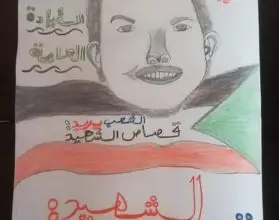 الشهادة
العامة
الشعب يريد
قصاص الشهيدة
الشهيدة